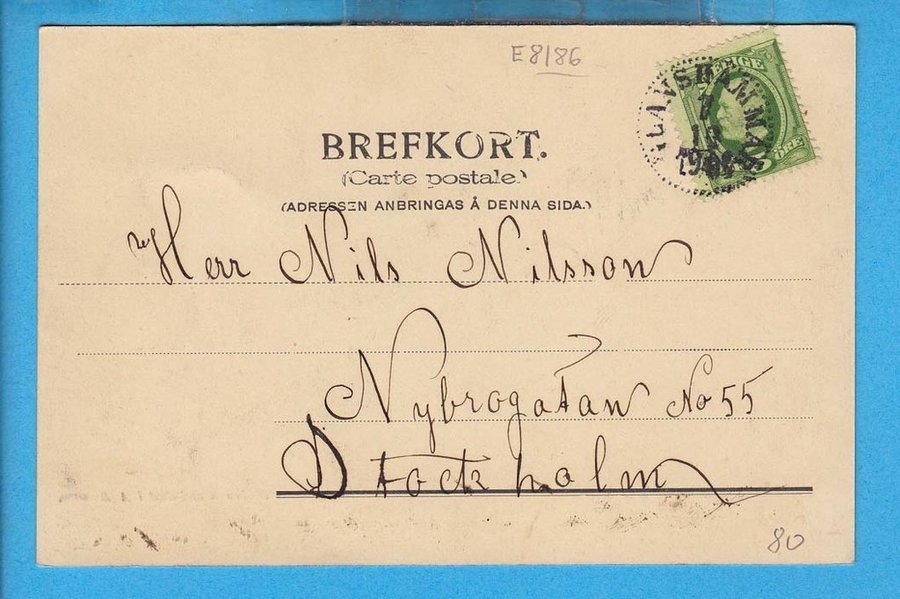 E8/86
SVERIGE
ÖRE
BREFKORT.
(Carte postale.)
(ADRESSEN ANBRINGAS Å DENNA SIDA.)
Herr Nils Nilsson
Nybrogatan No 55
Stockholm
80